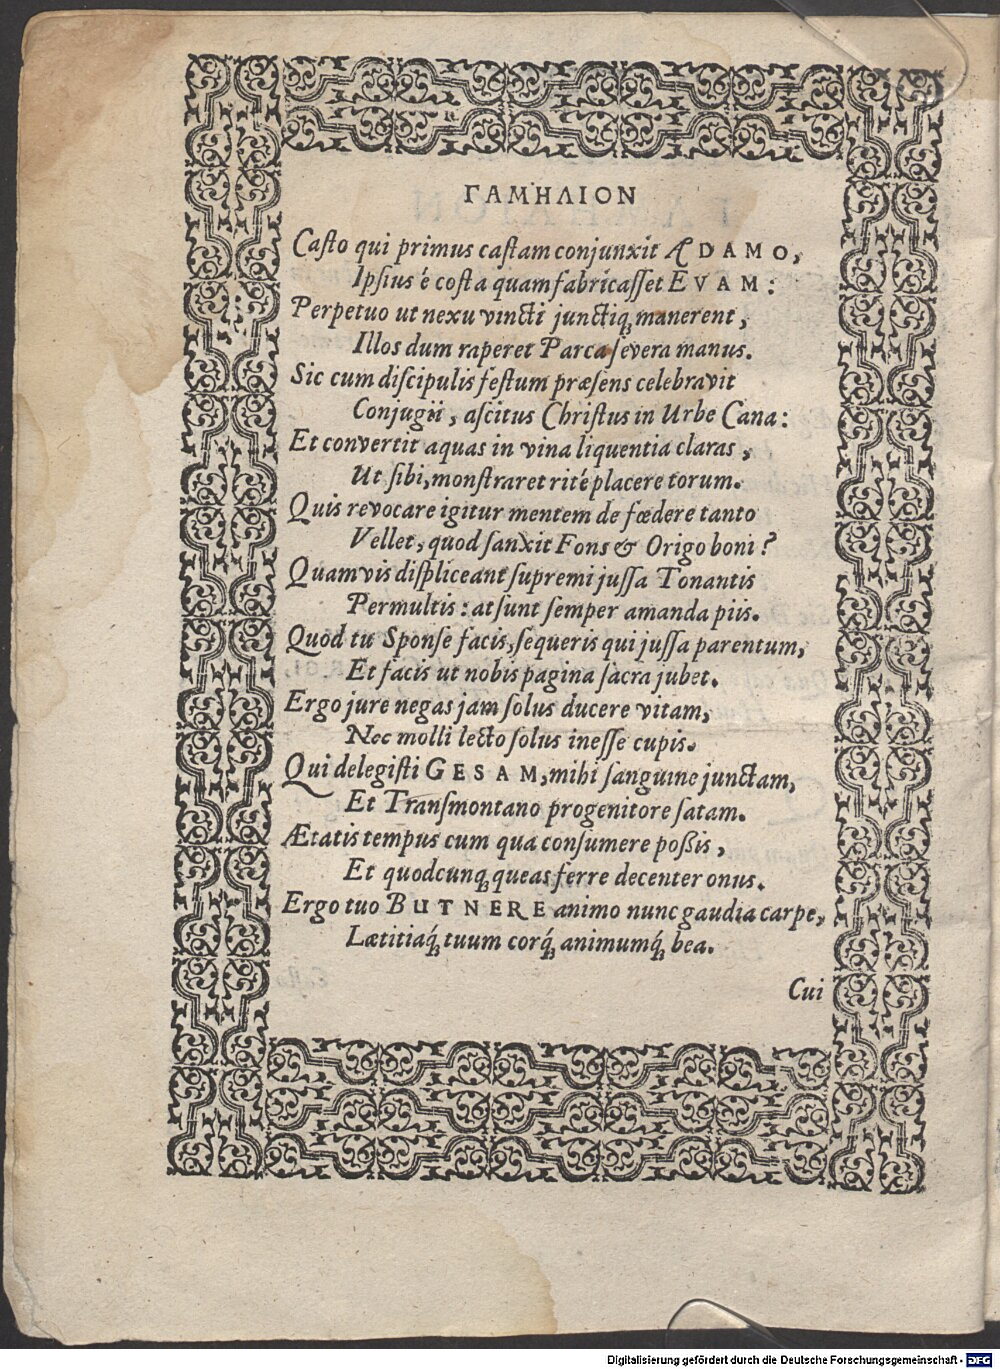 ΓΑΜΗΛΙΟΝ
Casto qui primus castam conjunxit ÆDAMO,
Ipsius é costa quam fabricasset EVAM:
Perpetuo ut nexu vincti junctiq́; manerent,
Illos dum raperet Parca severa manus.
Sic cum discipulis festum præsens celebravit
Conjugii, ascitus Christus in Urbe Cana:
Et convertit aquas in vina liquentia claras,
Ut sibi, monstraret rité placere torum.
Quis revocare igitur mentem de fœdere tanto
Vellet, quod sanxit Fons & Origo boni?
Quamvis displiceant supremi jussa Tonantis
Permultis: at sunt semper amanda piis.
Quod tu Sponse facis, sequeris qui jussa parentum,
Et facis ut nobis pagina sacra jubet.
Ergo jure negas jam solus ducere vitam,
Nec molli lecto solus inesse cupis.
Qui delegisti GESAM, mihi sanguine junctam,
Et Transmontano progenitore satam.
Ætatis tempus cum qua consumere poßis,
Et quodcunq; queas ferre decenter onus.
Ergo tuo BUTNERE animo nunc gaudia carpe,
Lætitiaq́; tuum corq́; animumq́; bea.
Cui
Digitalisierung gefördert durch die Deutsche Forschungsgemeinschaft - DFG